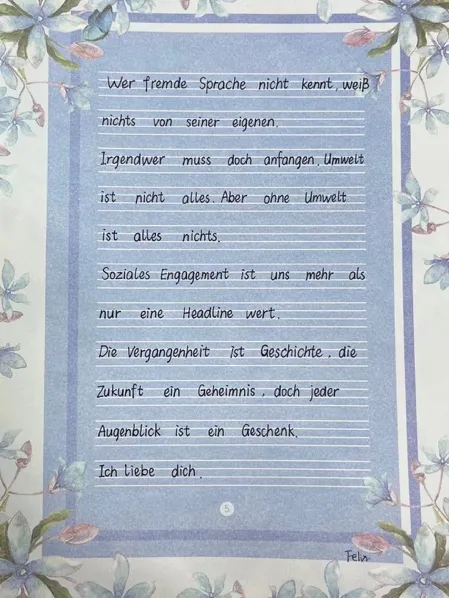 Wer fremde Sprache nicht kennt, weiß
nichts von seiner eigenen.
Irgendwer muss doch anfangen. Umwelt
ist nicht alles. Aber ohne Umwelt
ist alles nichts.
Soziales Engagement ist uns mehr als
nur eine Headline wert.
Die Vergangenheit ist Geschichte, die
Zukunft ein Geheimnis, doch jeder
Augenblick ist ein Geschenk.
Ich liebe dich.
5